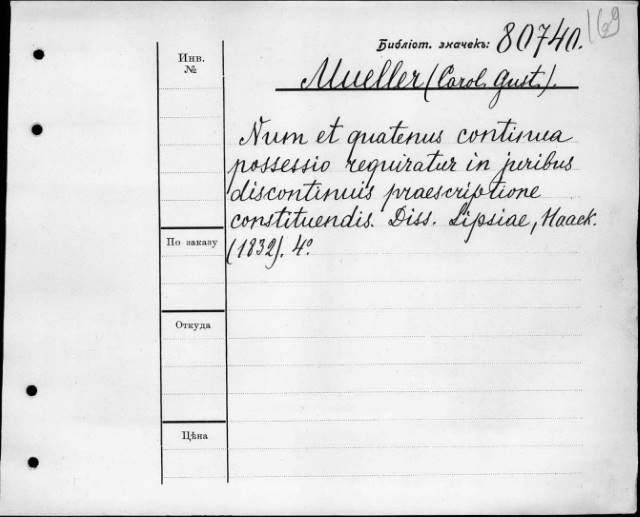 169
Библіот. значекъ: 80740.
Инв.
№
Mueller (Carol. Gust.).
Num et quatenus continua
possessio requiratur in juribus
discontinuis praescriptione
constituendis. Diss. Lipsiae, Haack.
По заказу
(1832). 4º
Откуда
Цѣна